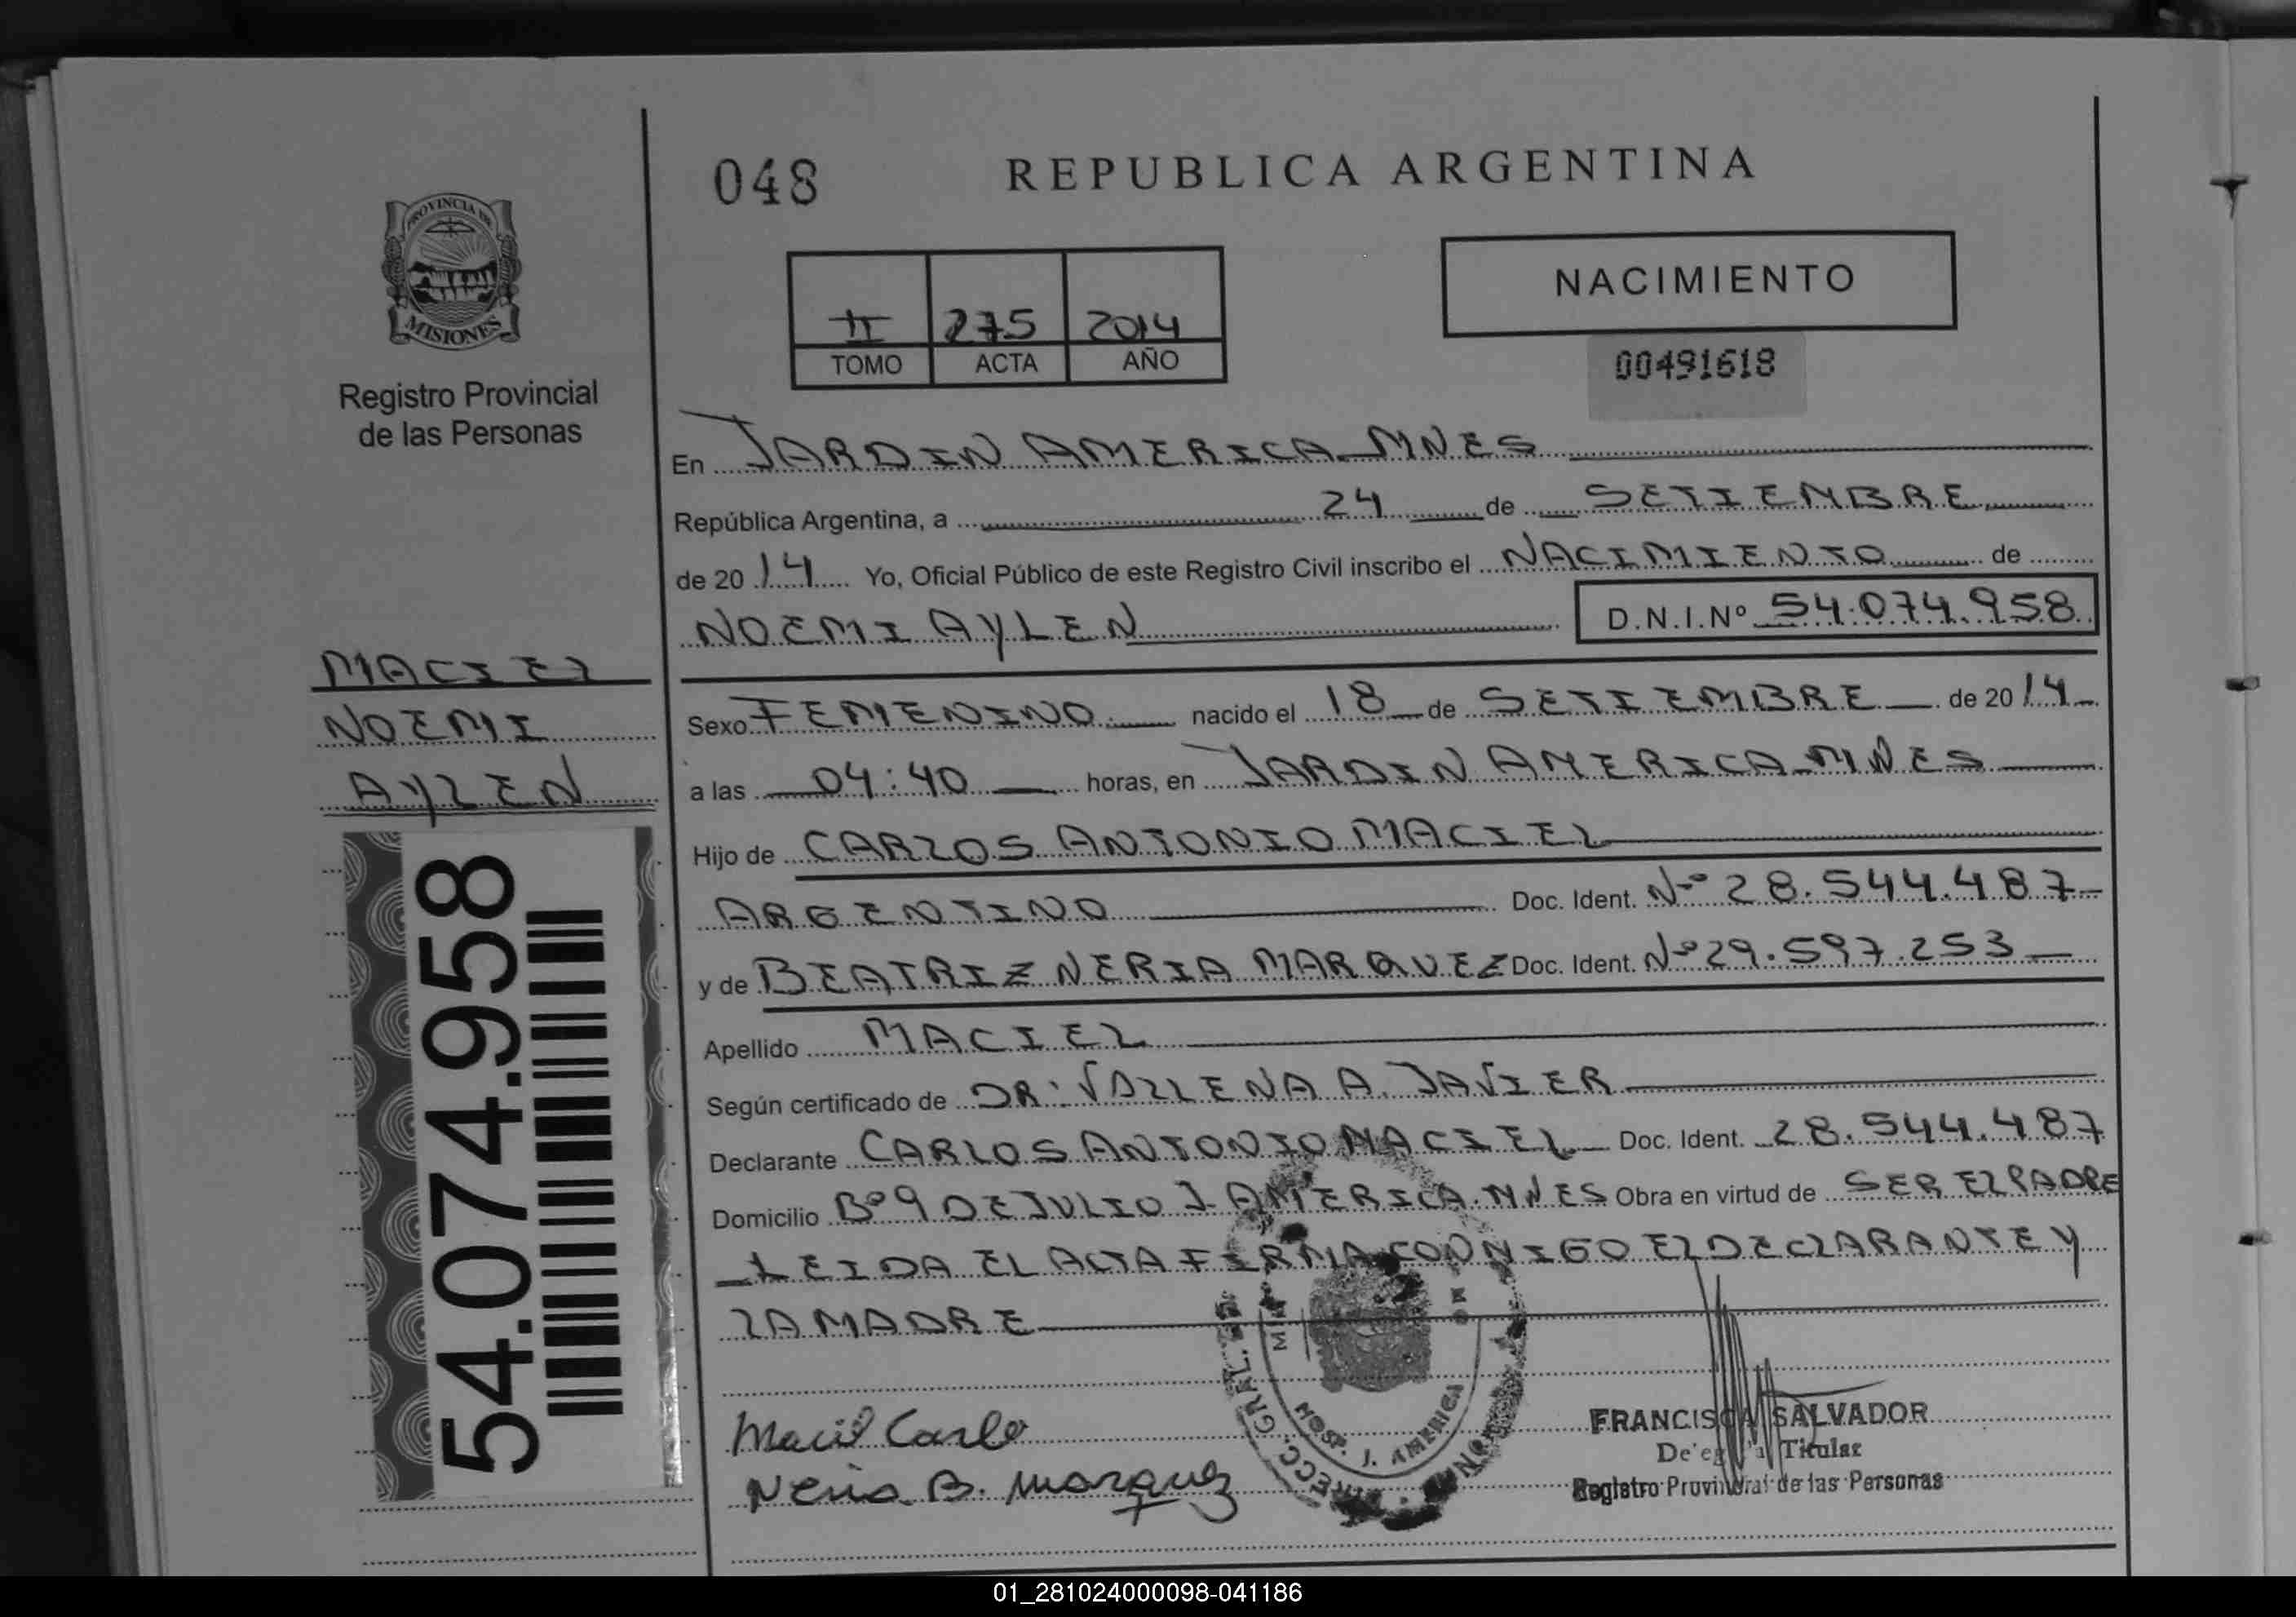 048
REPUBLICA ARGENTINA
PROVINCIA DE
MISIONES
Registro Provincial
de las Personas
II 275 2014
TOMO ACTA AÑO
NACIMIENTO
00491618
En JARDIN AMERICA MNES
República Argentina, a 24 de SETIEMBRE
de 2014 Yo, Oficial Público de este Registro Civil inscribo el NACIMIENTO de
NOEMI AYLEN D.N.I.Nº 54.074.958
MACIEL
NOEMI
AYLEN
54.074.958
Sexo FEMENINO nacido el 18 de SETIEMBRE de 2014
a las 04:40 horas, en JARDIN AMERICA MNES
Hijo de CARLOS ANTONIO MACIEL
ARGENTINO Doc. Ident. Nº 28.544.487
y de BEATRIZ NERIA MARQUEZ Doc. Ident. Nº 29.597.253
Apellido MACIEL
Según certificado de DR: A. JAVIER
Declarante CARLOS ANTONIO MACIEL Doc. Ident. 28.544.487
Domicilio Bº 9 DE JULIO J. AMERICA. MNES Obra en virtud de SER EL PADRE
LEIDA EL ACTA FIRMA CONMIGO EL DECLARANTE Y
LA MADRE
DIRECC. GRAL.
HOSP. J. AMERICA
Maciel Carlo
Neria B. Marquez
FRANCISCA SALVADOR
Titular
Registro Provincial de las Personas
01_281024000098-041186